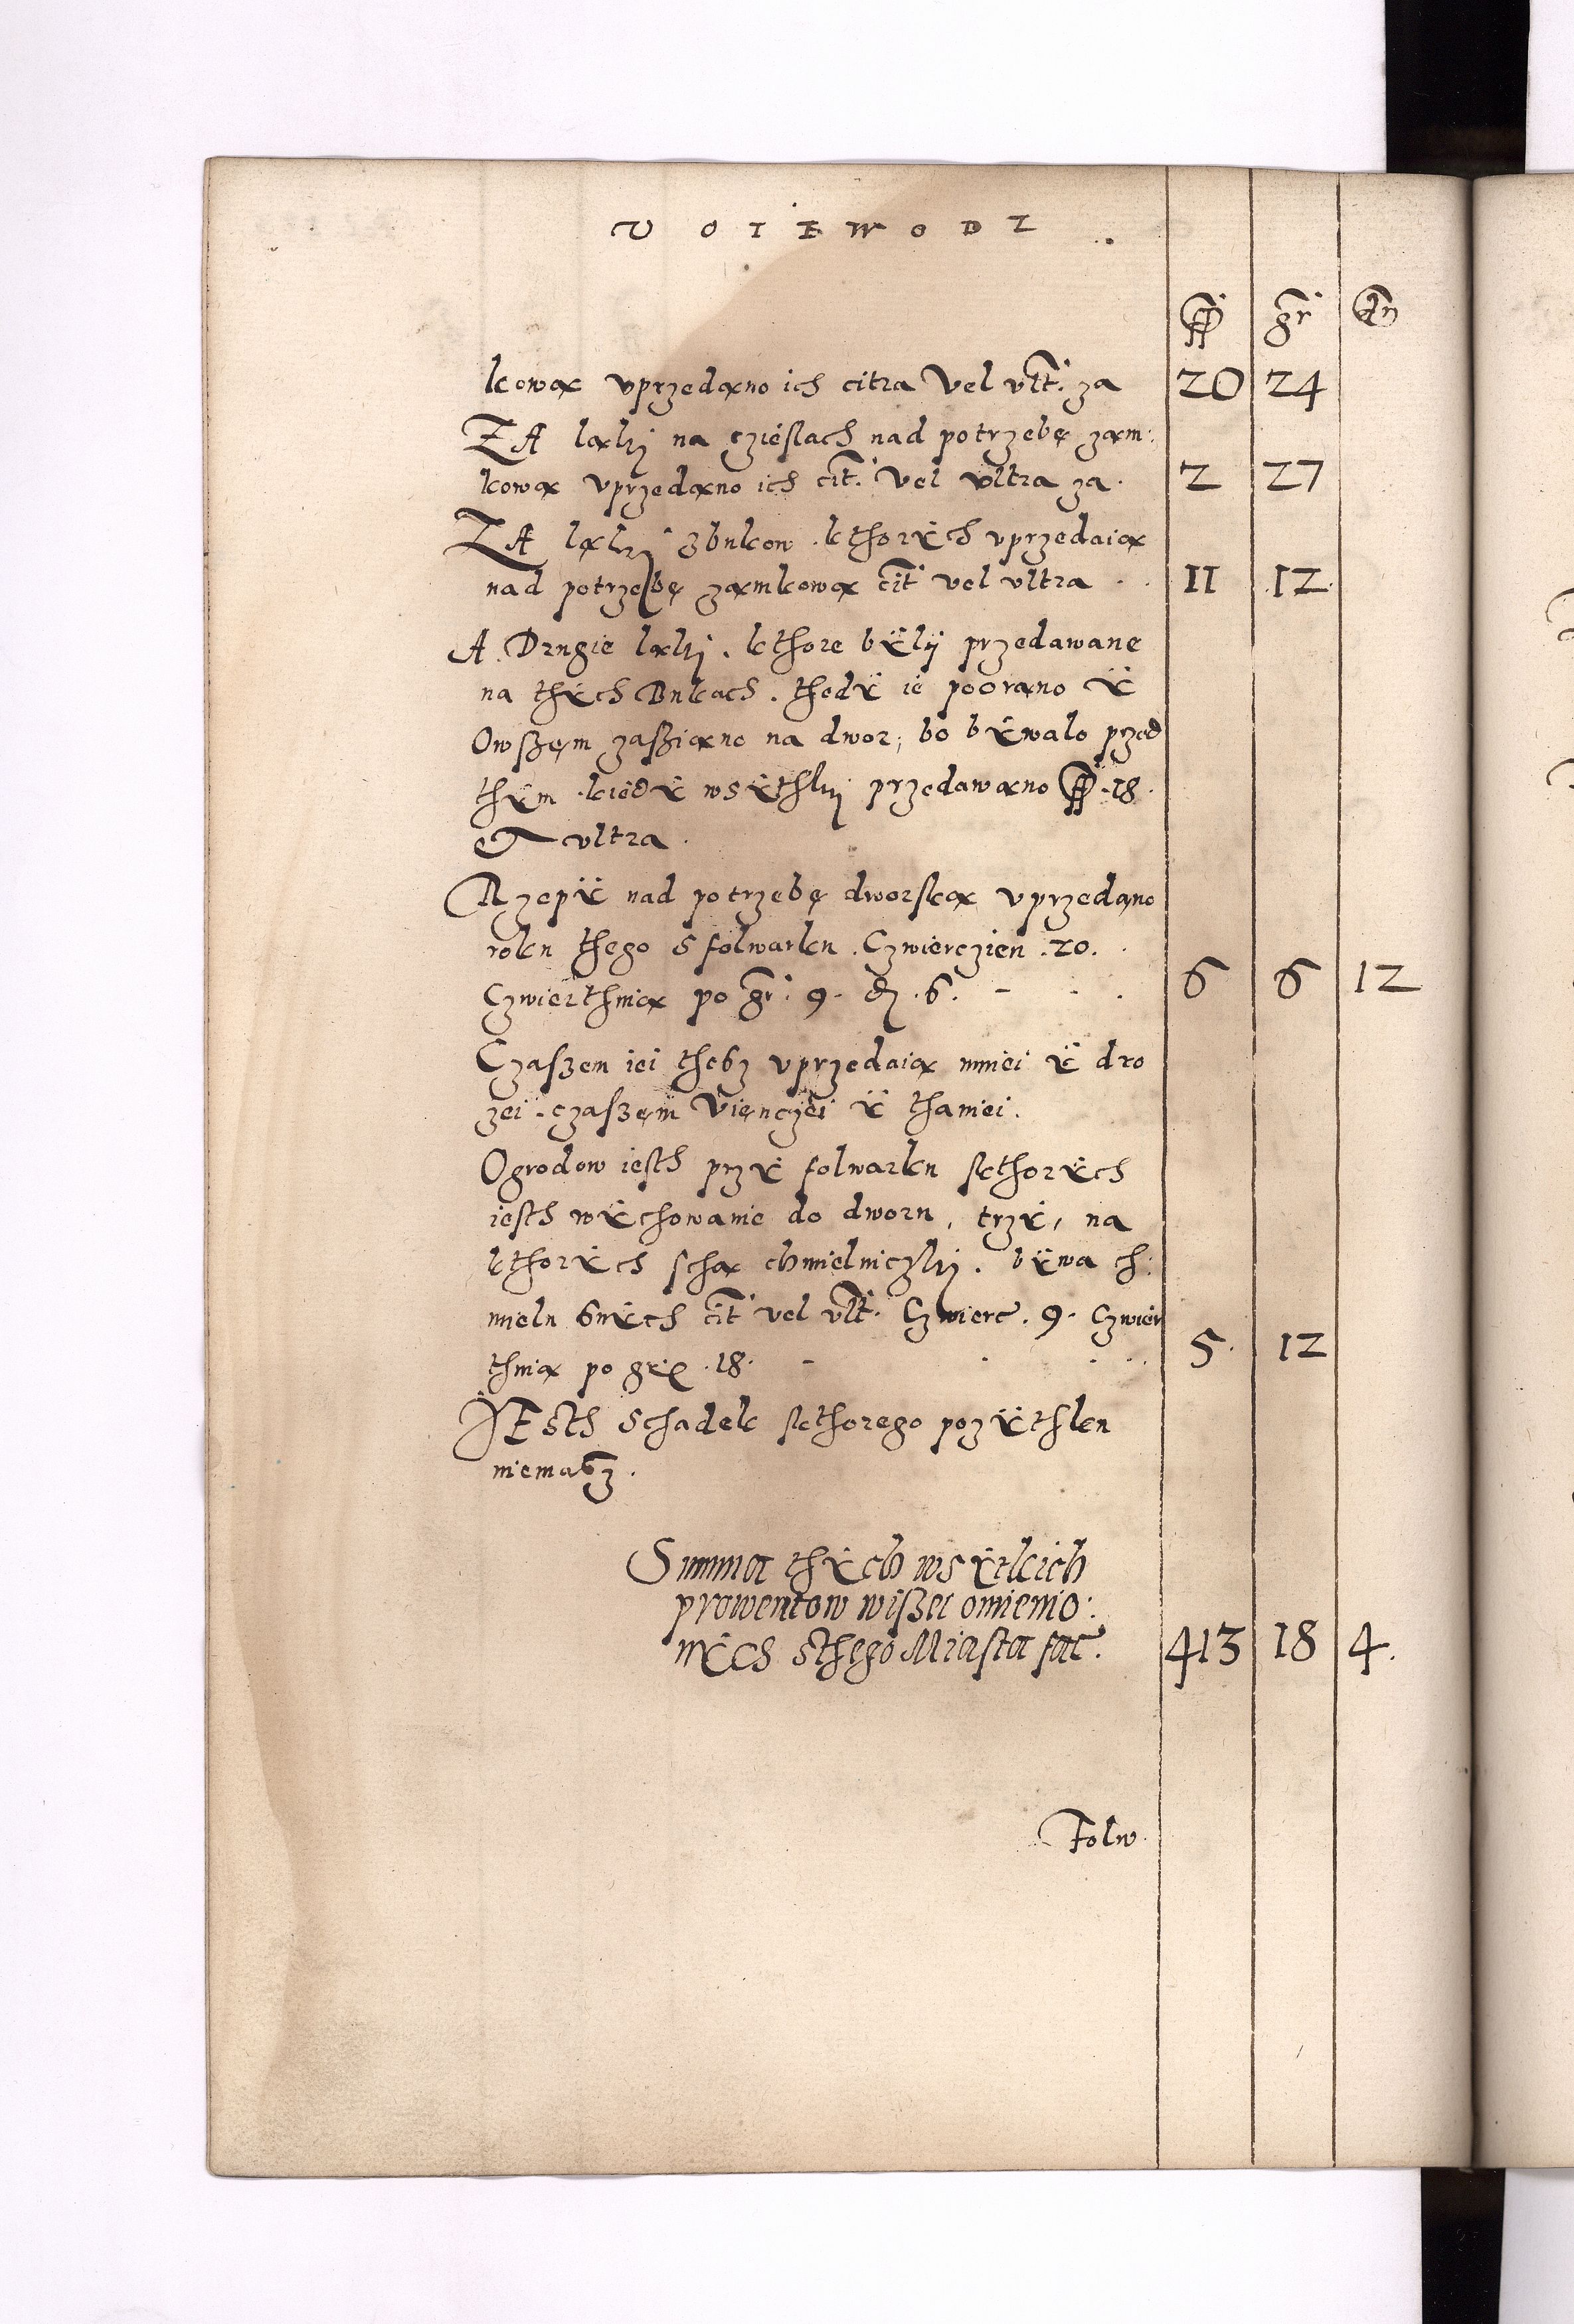 VOIEWODZ
ff gr dn
kową uprzedąno ich citra vel ult. za 20 24
ZA łąki na czieslach nad potrzebę ząm:
kową uprzedąno ich cit. vel ultra za 2 27
ZA łąki zbukow kthorÿch uprzedaią
nad potrzebę ząmkową cit vel ultra 11 12
A Drugie łąki kthore bÿlÿ przedawane
na thÿch Bukach. thedÿ ie poorąno ÿ
Owszęm zasziąno na dwor, bo bÿwalo przed
thÿm kiedÿ wsÿthki przedawąno ff 18
et ultra.
Rzepÿ nad potrzebę dworską uprzedąno
roku thego s folwarku. Czwierczien. 20.
Czwierthnią po gr. 9. d. 6. 6 6 12
Czaszen iei thesz uprzedaią mniei ÿ dro
zei. czaszęm Vięnczei ÿ thaniei.
Ogrodow iesth przÿ folwarku skthorÿch
iesth wÿchowanie do dworu, trzÿ, na
kthorÿch sthą chmielniczki. bÿwa ch:
mielu snich cit vel ult. Czwierc. 9. Czwier
thnią po gr. 18. 5. 12
IEsth Schadek skthorego pozÿthku
niemasz.
Summa thÿch wsÿtkich
prowentow wiszei omienio:
nÿch sthego Miasta fac. 413 18 4.
Folw.